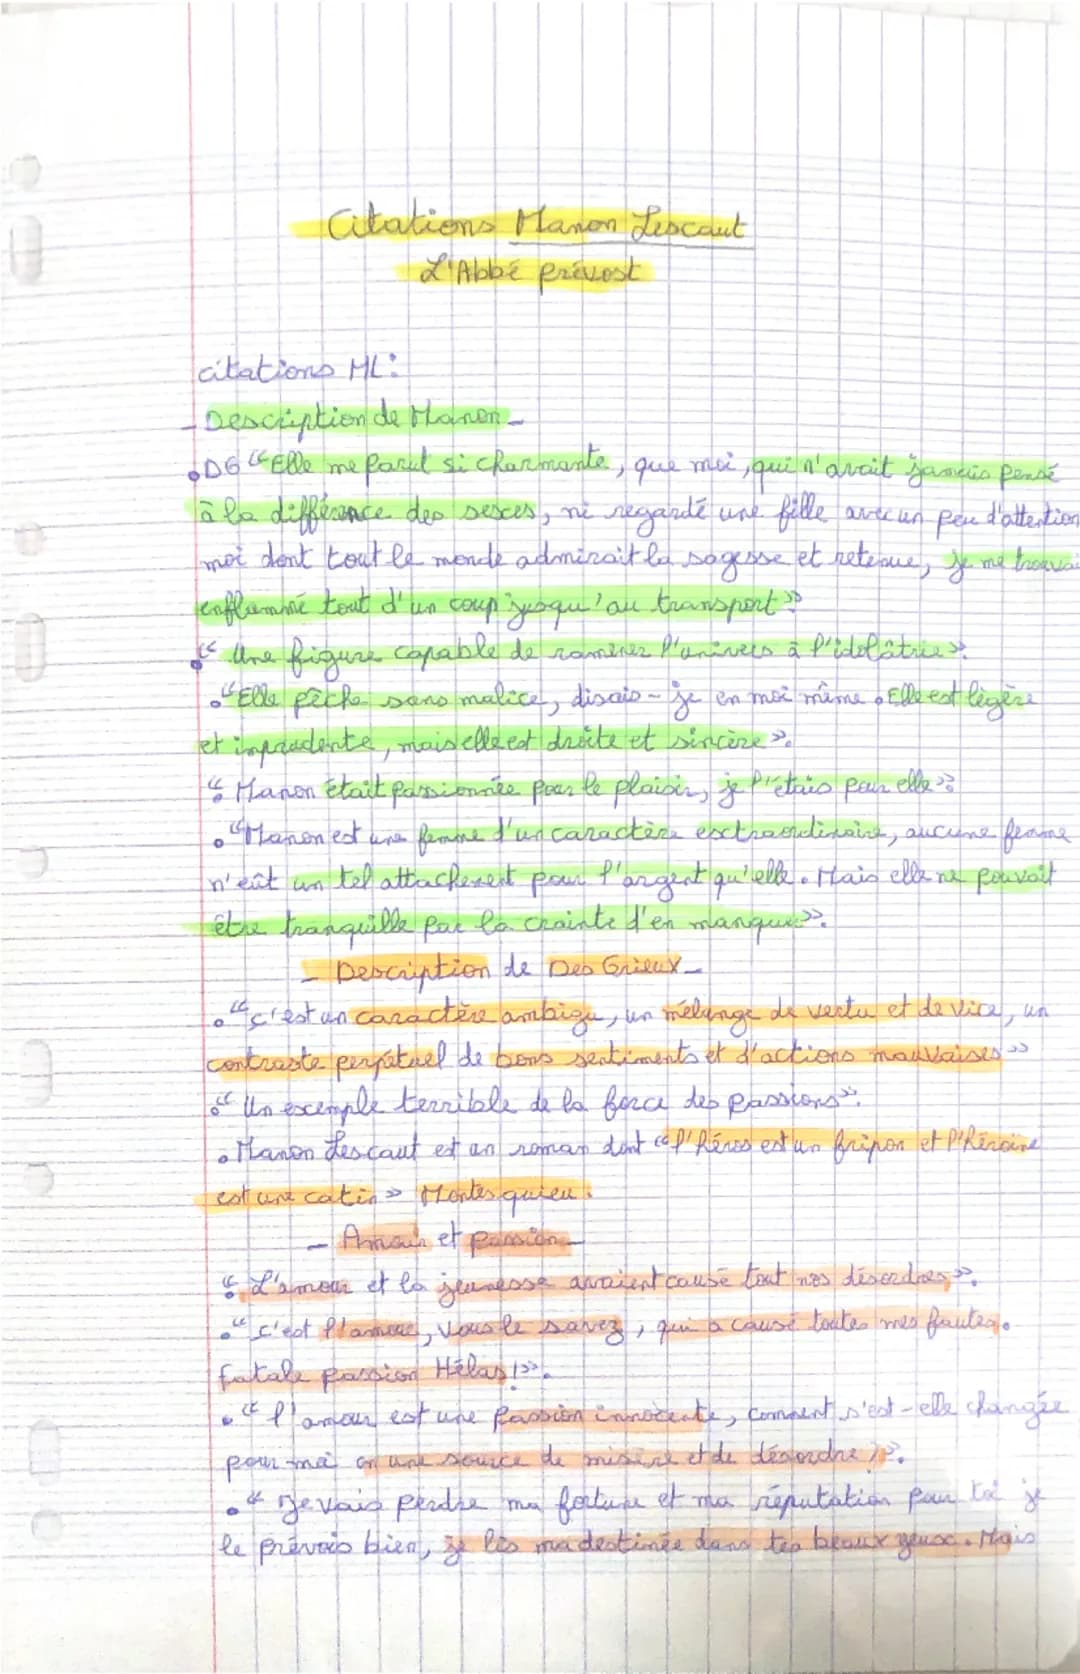 Citations Manon Lescaut
L'Abbé prévost
citations ML:
- Description de Manon -
• DG "Elle me parut si charmante, que moi, qui n'avait jamais pensé
à la différence des sexes, ni regardé une fille avec un peu d'attention
moi dont tout le monde admirait la sagesse et retenue, je me trouvai
enflammé tout d'un coup jusqu'au transport"
• "Une figure capable de ramener l'univers à l'idolâtrie".
• "Elle pêche sans malice, disais-je en moi même. Elle est légère
et imprudente, mais elle est droite et sincère".
" Manon était passionnée pour le plaisir, je l'étais pour elle"
• "Manon est une femme d'un caractère extraordinaire, aucune femme
n'eût un tel attachement pour l'argent qu'elle. Mais elle ne pouvait
être tranquille par la crainte d'en manquer".
- Description de Des Grieux -
• "c'est un caractère ambigu, un mélange de vertu et de vice, un
contraste perpétuel de bons sentiments et d'actions mauvaises"
• "Un exemple terrible de la force des passions".
• Manon Lescaut est un roman dont "l'héros est un fripon et l'héroïne
est une catin" Montesquieu.
- Amour et passion -
" L'amour et la jeunesse avaient causé tout nos désordres".
• "c'est l'amour, vous le savez, qui a causé toutes mes fautes.
Fatale passion Hélas!".
• "l'amour est une passion innocente, comment s'est-elle changée
pour moi en une source de misère et de désordre?".
• " Je vais perdre ma fortune et ma réputation pour toi je
le prévois bien, je lis ma destinée dans tes beaux yeux. Mais